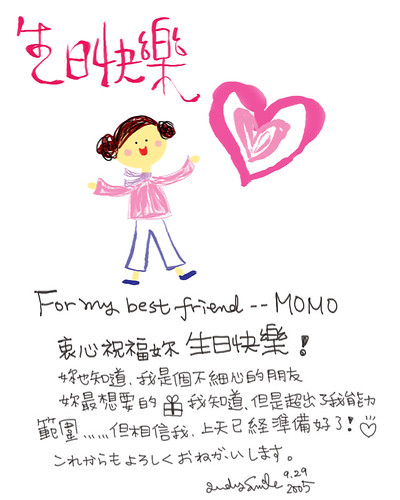 生日快樂
For my best friend -- MOMO
衷心祝福妳 生日快樂!
妳也知道,我是個不細心的朋友
妳最想要的 我知道,但是超出了我能力
範圍......但相信我,上天已經準備好了!
これからもよろしくおねがいします。
9.29
2005